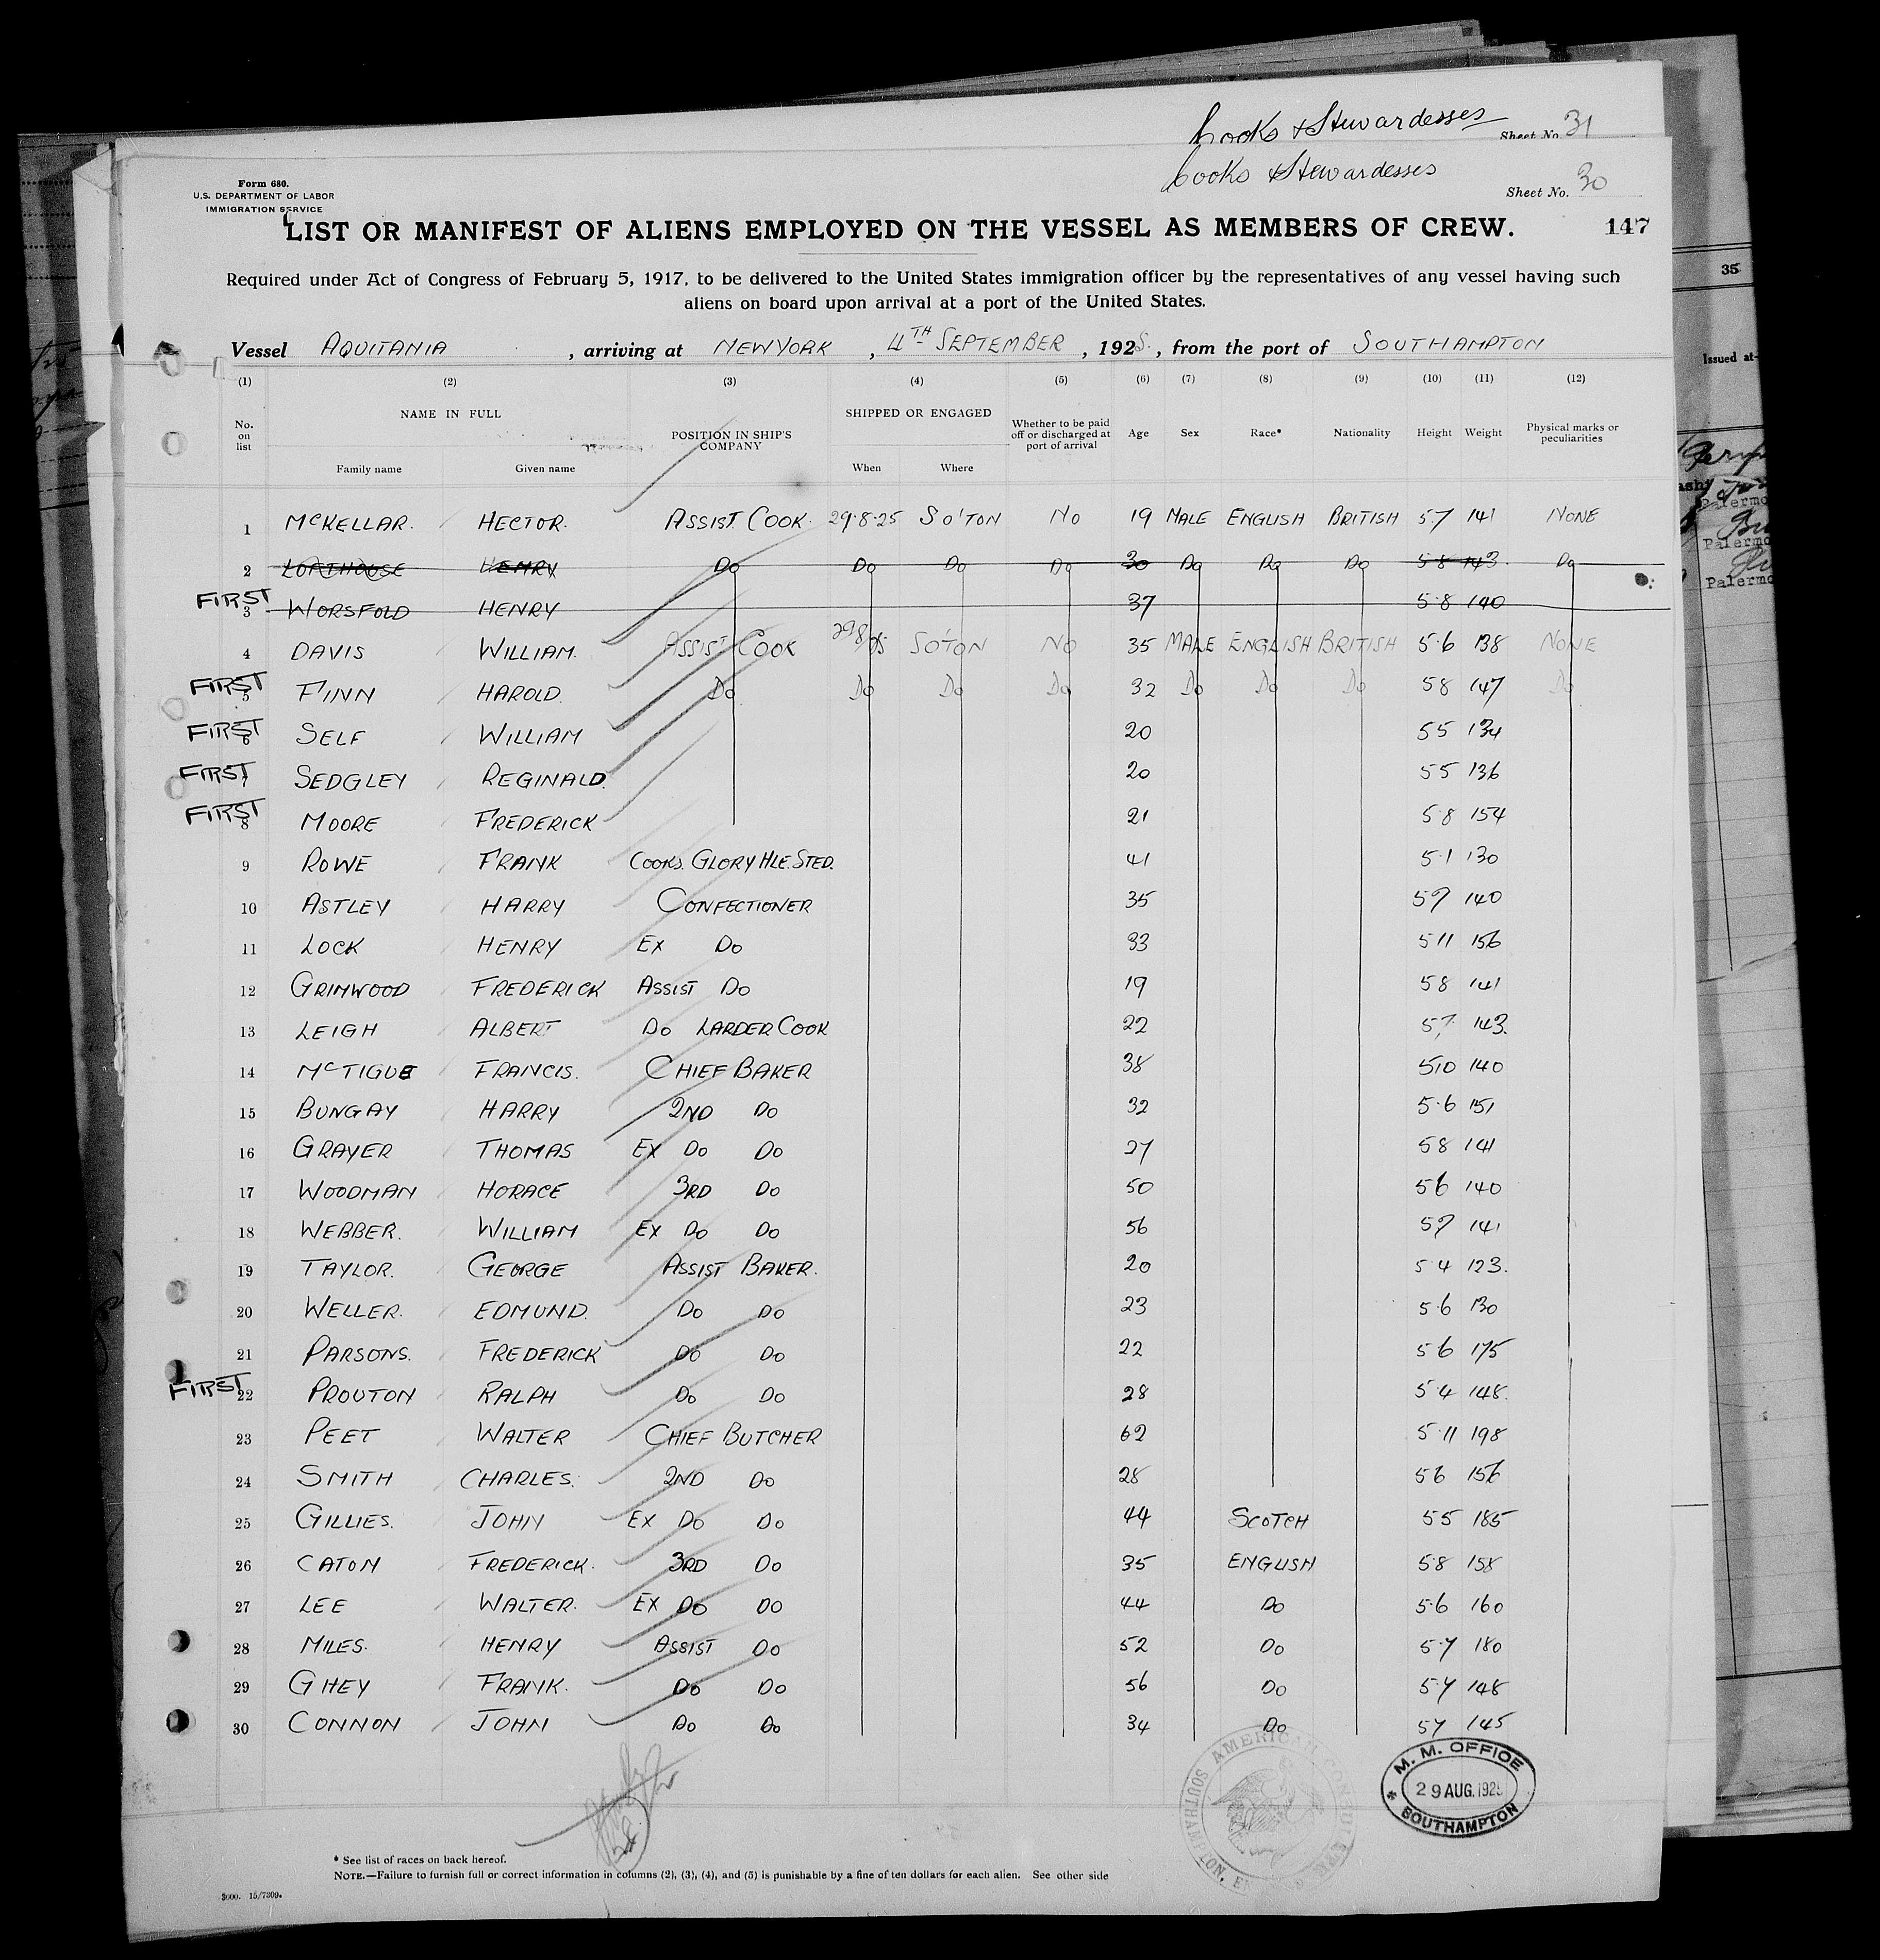 Cooks & Stewardesses Sheet No. 31
Cooks & Stewardesses
Sheet No. 30
Form 680.
U.S. DEPARTMENT OF LABOR
IMMIGRATION SERVICE
LIST OR MANIFEST OF ALIENS EMPLOYED ON THE VESSEL AS MEMBERS OF CREW. 147
Required under Act of Congress of February 5, 1917, to be delivered to the United States immigration officer by the representatives of any vessel having such
aliens on board upon arrival at a port of the United States.
Vessel AQUITANIA , arriving at NEW YORK , 4TH SEPTEMBER , 1925 , from the port of SOUTHAMPTON
(1) (2) (3) (4) (5) (6) (7) (8) (9) (10) (11) (12)
No. on list NAME IN FULL Family name Given name POSITION IN SHIP'S COMPANY SHIPPED OR ENGAGED When Where Whether to be paid off or discharged at port of arrival Age Sex Race* Nationality Height Weight Physical marks or peculiarities
1 McKELLAR. HECTOR. ASSIST. COOK. 29.8.25 SO'TON NO 19 MALE ENGLISH BRITISH 5.7 141 NONE
2 LOFTHOUSE HENRY DO DO DO DO 30 DO DO DO 5 8 143. DO
FIRST 3 WORSFOLD HENRY 37 5.8 140
4 DAVIS WILLIAM. ASSIST COOK 29/8/25 SO'TON NO 35 MALE ENGLISH BRITISH 5.6 138 NONE
FIRST 5 FINN HAROLD. DO DO DO DO 32 DO DO DO 5 8 147 DO
FIRST 6 SELF WILLIAM 20 5 5 134
FIRST 7 SEDGLEY REGINALD. 20 5 5 136
FIRST 8 MOORE FREDERICK 21 5.8 154
9 ROWE FRANK COOKS. GLORY HLE. STED. 41 5.1 130
10 ASTLEY HARRY CONFECTIONER 35 5 9 140
11 LOCK HENRY EX DO 33 5 11 156
12 GRIMWOOD FREDERICK ASSIST DO 19 5 8 141
13 LEIGH ALBERT DO LARDER COOK 22 5 7. 143.
14 McTIGUE FRANCIS. CHIEF BAKER 38 5 10 140
15 BUNGAY HARRY 2ND DO 32 5.6 151
16 GRAYER THOMAS EX DO DO 27 5 8 141
17 WOODMAN HORACE 3RD DO 50 5 6 140
18 WEBBER. WILLIAM EX DO DO 56 5 9 141
19 TAYLOR. GEORGE ASSIST BAKER. 20 5 4 123.
20 WELLER. EDMUND. DO DO 23 5.6 130
21 PARSONS. FREDERICK DO DO 22 5 6 175
FIRST 22 PROUTON RALPH DO DO 28 5 4 148.
23 PEET WALTER CHIEF BUTCHER 62 5 11 198
24 SMITH CHARLES. 2ND DO 28 5 6 156
25 GILLIES. JOHN EX DO DO 44 SCOTCH 5 5 185
26 CATON FREDERICK. 3RD DO 35 ENGLISH 5.8 158
27 LEE WALTER. EX DO DO 44 DO 5.6 160
28 MILES. HENRY ASSIST DO 52 DO 5.7 180
29 GHEY FRANK. DO DO 56 DO 5.7 148
30 CONNON JOHN DO DO 34 DO 5 7 145
AMERICAN SOUTHAMPTON,
M. M. OFFICE
29 AUG. 1925
* SOUTHAMPTON
* See list of races on back hereof.
NOTE.—Failure to furnish full or correct information in columns (2), (3), (4), and (5) is punishable by a fine of ten dollars for each alien. See other side
3000. 15/7309.
35
Issued at
Palermo
Palermo
Palermo